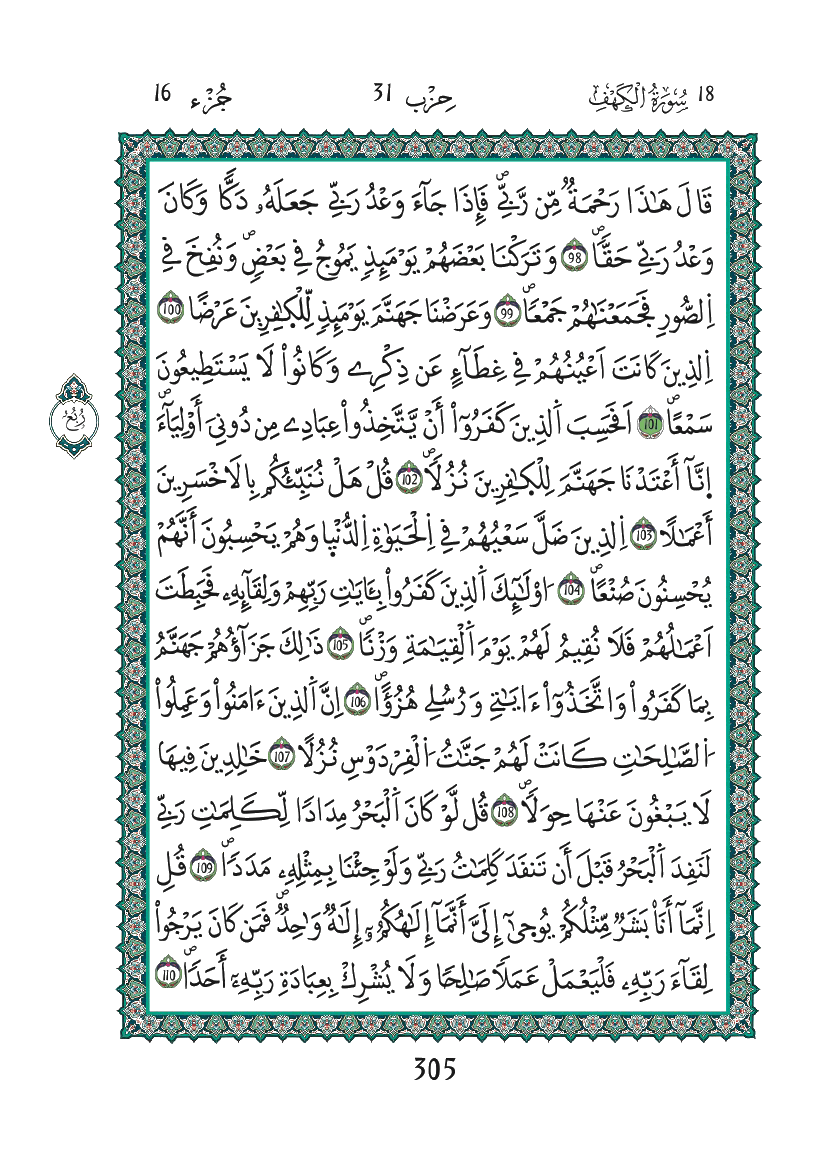 18 سُورَةُ الْكَهْفِ حِزْب 31 جُزْء 16
قَالَ هَٰذَا رَحْمَةٌ مِّن رَّبِّےۖ فَإِذَا جَآءَ وَعْدُ رَبِّے جَعَلَهُۥ دَكّاٗ وَكَانَ
وَعْدُ رَبِّے حَقّاٗۖ 98 وَتَرَكْنَا بَعْضَهُمْ يَوْمَئِذٖ يَمُوجُ فِے بَعْضٖۖ وَنُفِخَ فِے
اِ۬لصُّورِ فَجَمَعْنَٰهُمْ جَمْعاٗۖ 99 وَعَرَضْنَا جَهَنَّمَ يَوْمَئِذٖ لِّلْكَٰفِرِينَ عَرْضاً 100
اِ۬لذِينَ كَانَتَ اَعْيُنُهُمْ فِے غِطَآءٍ عَن ذِكْرِے وَكَانُواْ لَا يَسْتَطِيعُونَ
سَمْعاًۖ 101 اَفَحَسِبَ اَ۬لذِينَ كَفَرُوٓاْ أَنْ يَّتَّخِذُواْ عِبَادِے مِن دُونِيَ أَوْلِيَآءَۖ
رُبُع
اِنَّآ أَعْتَدْنَا جَهَنَّمَ لِلْكَٰفِرِينَ نُزُلاٗۖ 102 قُلْ هَلْ نُنَبِّئُكُم بِالَاخْسَرِينَ
أَعْمَٰلاً 103 اِ۬لذِينَ ضَلَّ سَعْيُهُمْ فِے اِ۬لْحَيَوٰةِ اِ۬لدُّنْيا وَهُمْ يَحْسِبُونَ أَنَّهُمْ
يُحْسِنُونَ صُنْعاًۖ 104 اُوْلَٰٓئِكَ اَ۬لذِينَ كَفَرُواْ بِـَٔايَٰتِ رَبِّهِمْ وَلِقَآئِهِۦ فَحَبِطَتَ
اَعْمَٰلُهُمْ فَلَا نُقِيمُ لَهُمْ يَوْمَ اَ۬لْقِيَٰمَةِ وَزْناٗۖ 105 ذَٰلِكَ جَزَآؤُهُمْ جَهَنَّمُ
بِمَا كَفَرُواْ وَاتَّخَذُوٓاْ ءَايَٰتِے وَرُسُلِے هُزُؤاًۖ 106 اِنَّ اَ۬لذِينَ ءَامَنُواْ وَعَمِلُواْ
اُ۬لصَّٰلِحَٰتِ كَانَتْ لَهُمْ جَنَّٰتُ اُ۬لْفِرْدَوْسِ نُزُلاً 107 خَٰلِدِينَ فِيهَا
لَا يَبْغُونَ عَنْهَا حِوَلاٗۖ 108 قُل لَّوْ كَانَ اَ۬لْبَحْرُ مِدَاداٗ لِّكَلِمَٰتِ رَبِّے
لَنَفِدَ اَ۬لْبَحْرُ قَبْلَ أَن تَنفَدَ كَلِمَٰتُ رَبِّے وَلَوْ جِئْنَا بِمِثْلِهِۦ مَدَداٗۖ 109 قُلِ
اِنَّمَآ أَنَا۠ بَشَرٌ مِّثْلُكُمْ يُوحَيٰٓ إِلَيَّ أَنَّمَآ إِلَٰهُكُمُۥٓ إِلَٰهٌ وَٰحِدٌۖ فَمَن كَانَ يَرْجُواْ
لِقَآءَ رَبِّهِۦ فَلْيَعْمَلْ عَمَلاٗ صَٰلِحاٗ وَلَا يُشْرِكْ بِعِبَادَةِ رَبِّهِۦٓ أَحَداًۖ 110
305